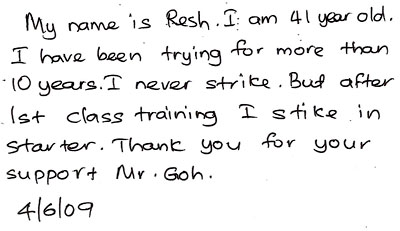 My name is Resh. I am 41 year old.
I have been trying for more than
10 years. I never strike. But after
1st class training I stike in
starter. Thank you for your
support Mr. Goh.
4/6/09